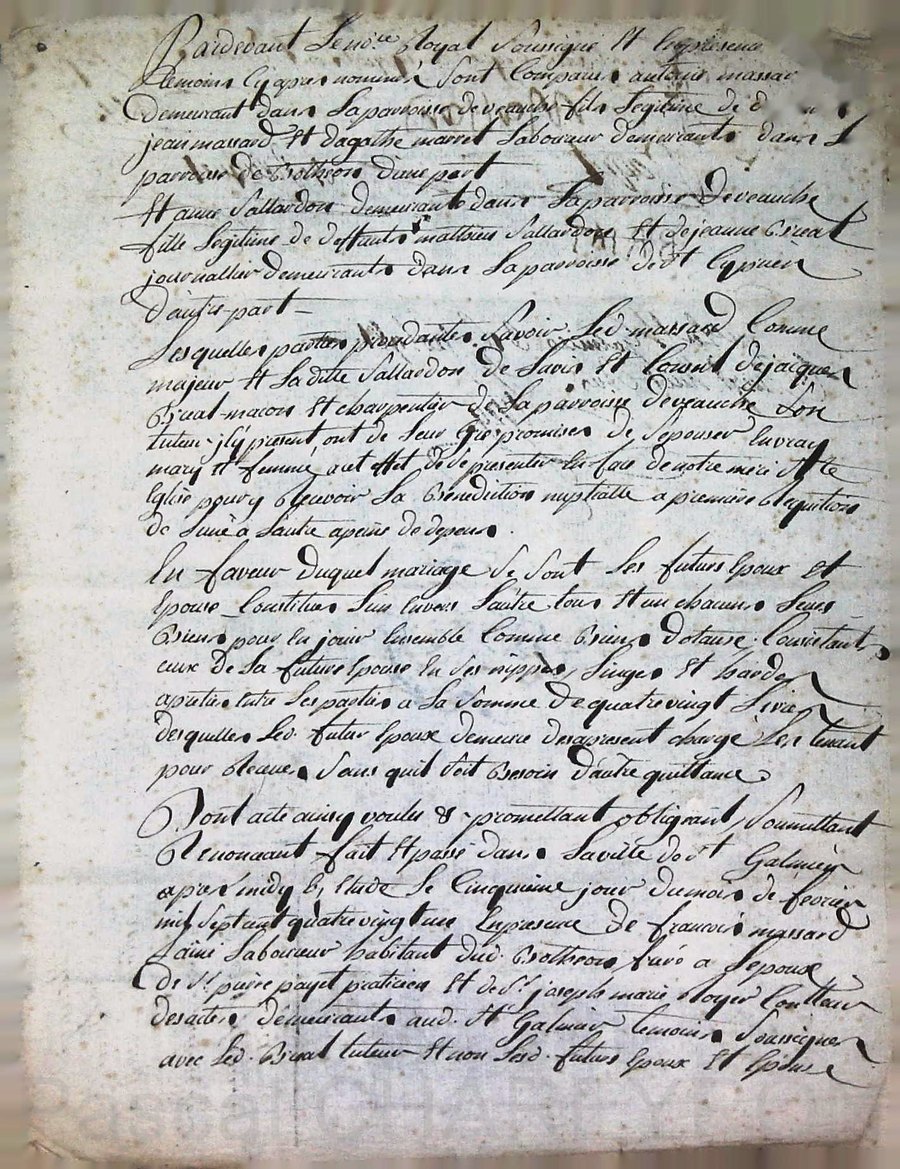 Pardevant Le no.re Royal Soussigné Et En presence
temoins Cy apres nommés Sont Comparus antoine massar
Demeurant dans La parroisse de veauche fils Legitime de
jean massard Et dagathe marret Laboureur demeurants dans L
parroisse de Botheon dune part
Et anne Sallardon demeurante dans La parroisse De veauche
fille Legitime de deffunts mathieu Sallardon Et de jeanne Breat
journallier demeurants dans La parroisse de St Cyprien
d'autre part
Lesquelles parties procedantes Savoir Led. massard Comme
majeur Et Laditte Sallardon de Lavis Et Consent de jacques
Breat macon Et charpentier de La parroisse de veauche Son
tuteur icy present ont de Leur gré promises de Sepouser En vray
mary Et femme a cet effet de Se presenter En face de notre mere Ste
Eglise pour y Recevoir La Benediction nuptialle a premiere Requition
de Lune a Lautre a peine de depens.
En faveur duquel mariage Se Sont Les futurs Epoux Et
Epouse Constitues Lun Envers Lautre tous Et un chacuns Leurs
Biens pour En jouir Ensemble Comme Biens Dotaux Consistant
ceux de La future Epouse En Ses nippes, Linges Et hardes
apreties Entre Les parties a La Somme De quatre vingt Livres
desquelles Led. futur Epoux demeure desapresent chargé Les tenant
pour Recues Sans quil Soit Besoin dautre quittance
Dont acte ainsy voulu & promettant obligeant, Soumettant
Renoncant fait Et passé dans La ville de St Galmier
apres midy Et Etude Le Cinquieme jour du mois de fevrier
mil Sept cent quatre vingt une En presence de francois massard
Lainé Laboureur habitant dud. Botheon frere a Lepoux
De Sr. pierre payet praticien Et de Sr. joseph marie Royer Contleur
des actes demeurants aud. St Galmier temoins Soussignes
avec Led. Breat tuteur Et non Lesd. futurs Epoux Et Epouse
Pascal CHARLY